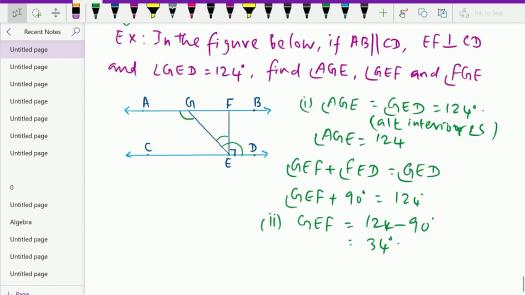 Recent Notes
Ink to Text
Untitled page
Untitled page
Untitled page
Untitled page
Untitled page
Untitled page
0
Untitled page
Algebra
Untitled page
Untitled page
Untitled page
Ex: In the figure below, if AB||CD, EF⊥CD
and ∠GED = 124°, find ∠AGE, ∠GEF and ∠FGE
A G F B
C E D
(i) ∠AGE = ∠GED = 124°.
(alt interior ∠s)
∠AGE = 124
∠GEF + ∠FED = ∠GED
∠GEF + 90° = 124°
(ii) ∠GEF = 124 - 90°
= 34°.